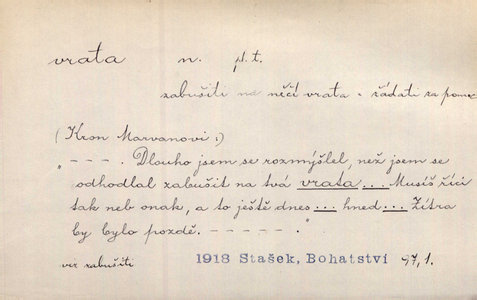 vrata n. pl. t.
zabušiti na něčí vrata = žádati za pomoc
(Kron Marvanovi:)
"- - - . Dlouho jsem se rozmýšlel, než jsem se
odhodlal zabušit na tvá vrata... Musíš říci
tak neb onak, a to ještě dnes... hned... Zítra
by bylo pozdě. - - - - - ."
viz zabušiti 1918 Stašek, Bohatství 97,1.